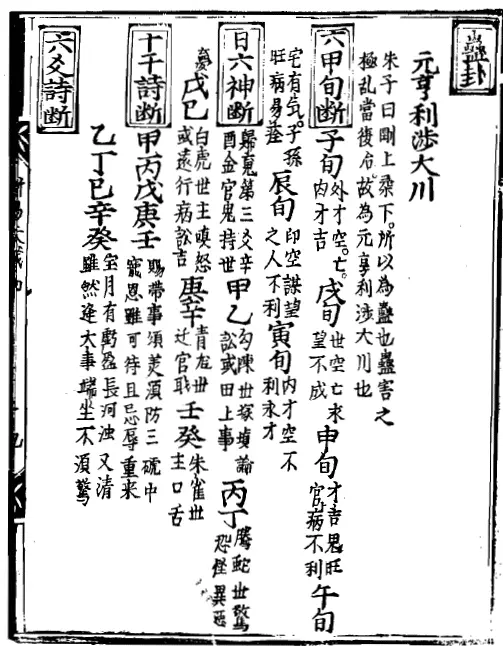 蠱卦
元亨利涉大川
朱子曰剛上柔下。所以為蠱也蠱害之
極乱當復治。故為元亨利涉大川也
六甲旬断 子旬 外才空。亡。内才吉 戌旬 世空亡求望不成 申旬 才吉鬼旺官病不利 午旬
宅有气。子孫旺病易痊 辰旬 印空謀望之人不利 寅旬 内才空不利求才
日六神断 歸魂第三爻辛酉金官鬼持世 甲乙 勾陳世塚墳論訟或田上事 丙丁 騰蛇世驚恐怪異惡
憂 戊巳 白虎世主嗔怒或遠行病訟吉 庚辛 青龙世迁官职 壬癸 朱雀世主口舌
十干詩断 甲丙戊庚壬 賜帶事頒美須防三褫中寵恩雖可待且忌辱重来
乙丁巳辛癸 宝月有虧盈長河浊又清雖然逢大事端坐不須驚
六爻詩断